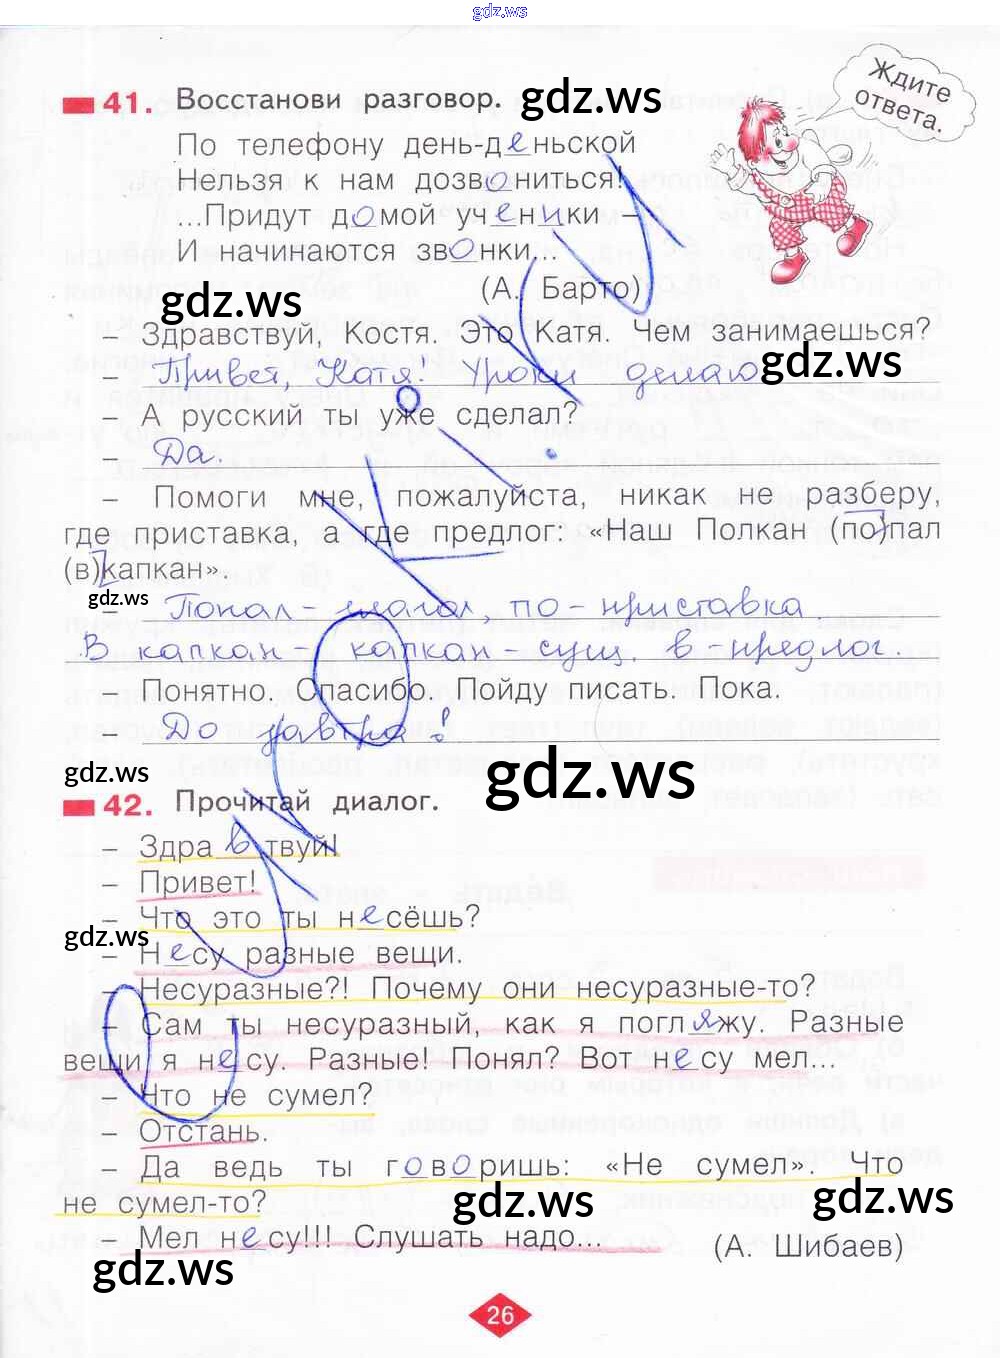 gdz.ws
41. Восстанови разговор. gdz.ws
Ждите
ответа.
По телефону день-деньской
Нельзя к нам дозвониться!
...Придут домой ученики –
И начинаются звонки...
(А. Барто)
gdz.ws
– Здравствуй, Костя. Это Катя. Чем занимаешься?
– Привет, Катя. Уроки делаю
gdz.ws
– А русский ты уже сделал?
– Да.
– Помоги мне, пожалуйста, никак не разберу,
где приставка, а где предлог: «Наш Полкан (по)пал
(в)капкан».
gdz.ws
– Попал - глагол, по - приставка
В капкан капкан - сущ. в - предлог
Понятно. Спасибо. Пойду писать. Пока.
До завтра!
gdz.ws
gdz.ws
42. Прочитай диалог.
– Здравствуй!
– Привет!
– Что это ты несёшь?
gdz.ws
– Несу разные вещи.
– Несуразные?! Почему они несуразные-то?
– Сам ты несуразный, как я погляжу. Разные
вещи я несу. Разные! Понял? Вот несу мел...
– Что не сумел?
– Отстань.
– Да ведь ты говоришь: «Не сумел». Что
не сумел-то?
gdz.ws
gdz.ws
– Мел несу!!! Слушать надо...
(А. Шибаев)
gdz.ws
26